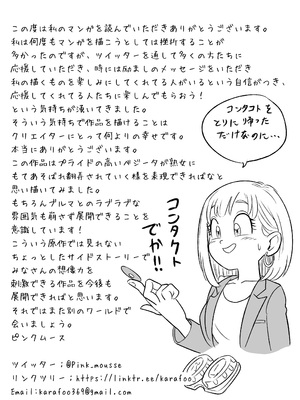 この度は私のマンガを読んでいただきありがとうございます。
私は何度もマンガを描こうとしては挫折することが
多かったのですが、ツイッターを通して多くのかたたちに
応援していただき、時には励ましのメッセージをいただき
私の描くものを楽しみにしてくれてる人がいるという自信がつき、
応援してくれてる人たちに楽しんでもらおう!
という気持ちが湧いてきました。
そういう気持ちで作品を描けることは
クリエイターにとって何よりの幸せです。
本当にありがとうございます。
この作品はプライドの高いベジータが熟女に
もてあそばれ翻弄されていく様を表現できればなと
思い描いてみました。
もちろんブルマとのラブラブな
雰囲気も崩さず展開できることを
意識しています!
こういう原作では見れない
ちょっとしたサイドストーリーで
みなさんの想像力を
刺激できる作品を今後も
展開できればと思います。
それではまた別のワールドで
会いましょう。
ピンクムース
ツイッター:@Pink_mousse
リンクツリー:https://linktr.ee/karafoo
Email:karafoo369@gmail.com
コンタクトを
とりに帰った
だけなのに…
コンタクト
でか!!